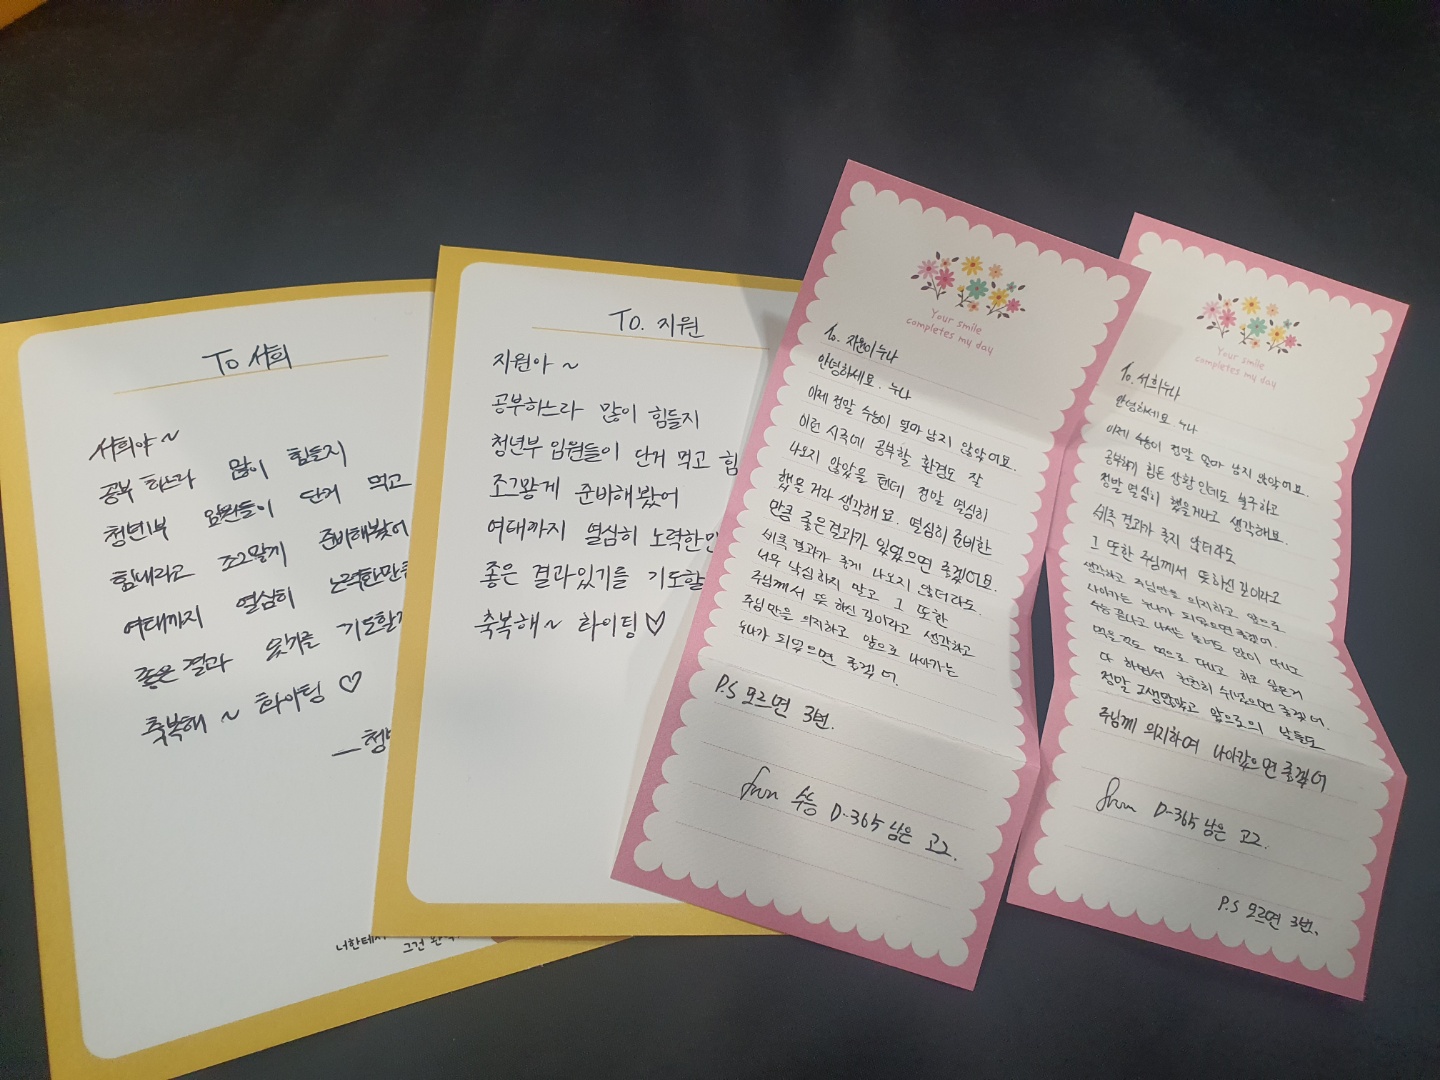 To 서희
서희야~
공부 하느라 많이 힘들지
청년부 임원들이 단거 먹고
힘내라고 조그맣게 준비해봤어
여태까지 열심히 노력한만큼
좋은 결과 있기를 기도할게
축복해~ 화이팅♡
너한테
그건
To. 지원
지원아~
공부하느라 많이 힘들지
청년부 임원들이 단거 먹고 힘
조그맣게 준비해봤어
여태까지 열심히 노력한만
좋은 결과있기를 기도할
축복해~ 화이팅♡
Your smile
completes my day
To. 지원이누나
안녕하세요. 누나
이제 정말 수능이 얼마 남지 않았어요.
이런 시국에 공부할 환경도 잘
나오지 않았을 텐데 정말 열심히
했을 거라 생각해요. 열심히 준비한
만큼 좋은결과가 있었으면 좋겠어요.
비록 결과가 좋게 나오지 않더라도.
너무 낙심하지 말고 그 또한
주님께서 뜻 하신 길이라고 생각하고
주님만을 의지하고 앞으로 나아가는
누나가 되었으면 좋겠어.
P.S 모르면 3번.
from 수능 D-365 남은 고2.
Your smile
completes my day
To. 서희누나
안녕하세요 누나
이제 수능이 정말 얼마 남지 않았어요.
공부하기 힘든 상황인데도 불구하고
정말 열심히 했을거라고 생각해요.
비록 결과가 좋지 않더라도
그 또한 주님께서 뜻하신 길이라고
생각하고 주님만을 의지하고 앞으로
나아가는 누나가 되었으면 좋겠어.
수능 끝나고 나서는 놀러도 많이 다니고
먹을것도 먹으로 다니고 하고 싶은거
다 하면서 천천히 쉬었으면 좋겠어.
정말 고생많았고 앞으로의 날들도
주님께 의지하여 나아갔으면 좋겠어
from D-365 남은 고2.
P.S 모르면 3번.